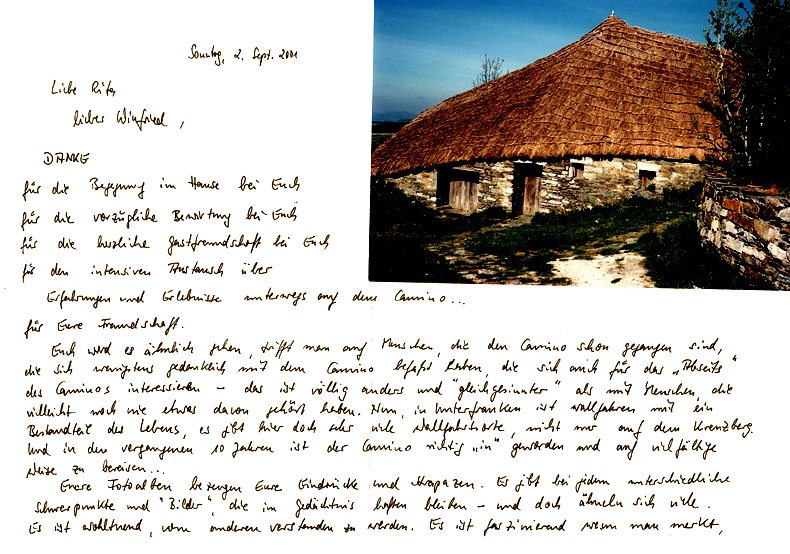 Sonntag, 2. Sept. 2001
Liebe Rita,
lieber Winfried,
DANKE
für die Begegnung im Hause bei Euch
für die vorzügliche Bewirtung bei Euch
für die herzliche Gastfreundschaft bei Euch
für den intensiven Austausch über
Erfahrungen und Erlebnisse unterwegs auf dem Camino...
für Eure Freundschaft.
Euch wird es ähnlich gehen, trifft man auf Menschen, die den Camino schon gegangen sind,
die sich wenigstens gedanklich mit dem Camino befaßt haben, die sich auch für das "Abseits"
des Caminos interessieren - das ist völlig anders und "gleichgesinnter" als mit Menschen, die
vielleicht noch nie etwas davon gehört haben. Nun, in Unterfranken ist wallfahren mit ein
Bestandteil des Lebens, es gibt hier doch sehr viele Wallfahrtsorte, nicht nur auf dem Kreuzberg.
Und in den vergangenen 10 Jahren ist der Camino richtig "in" geworden und auf vielfältige
Weise zu bereisen...
Eure Fotoalben bezeugen Eure Eindrücke und Strapazen. Es gibt bei jedem unterschiedliche
Schwerpunkte und "Bilder", die im Gedächtnis haften bleiben - und doch ähneln sich viele.
Es ist wohltuend, von anderen verstanden zu werden. Es ist faszinierend wenn man merkt,